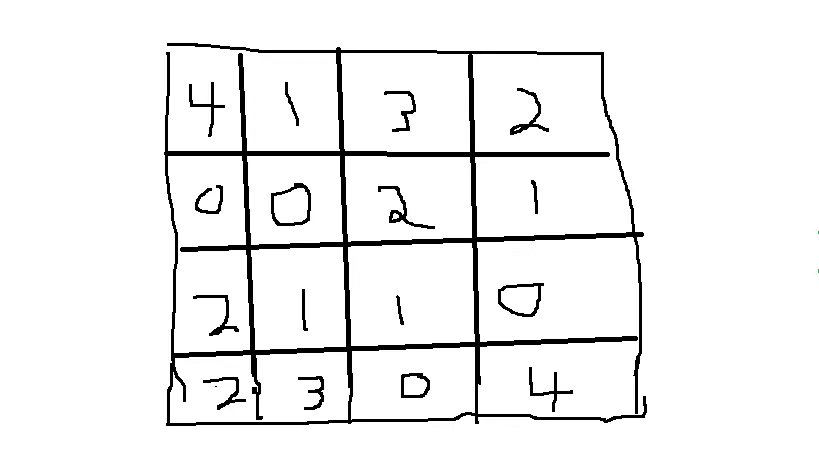 4 1 3 2
0 0 2 1
2 1 1 0
2 3 0 4